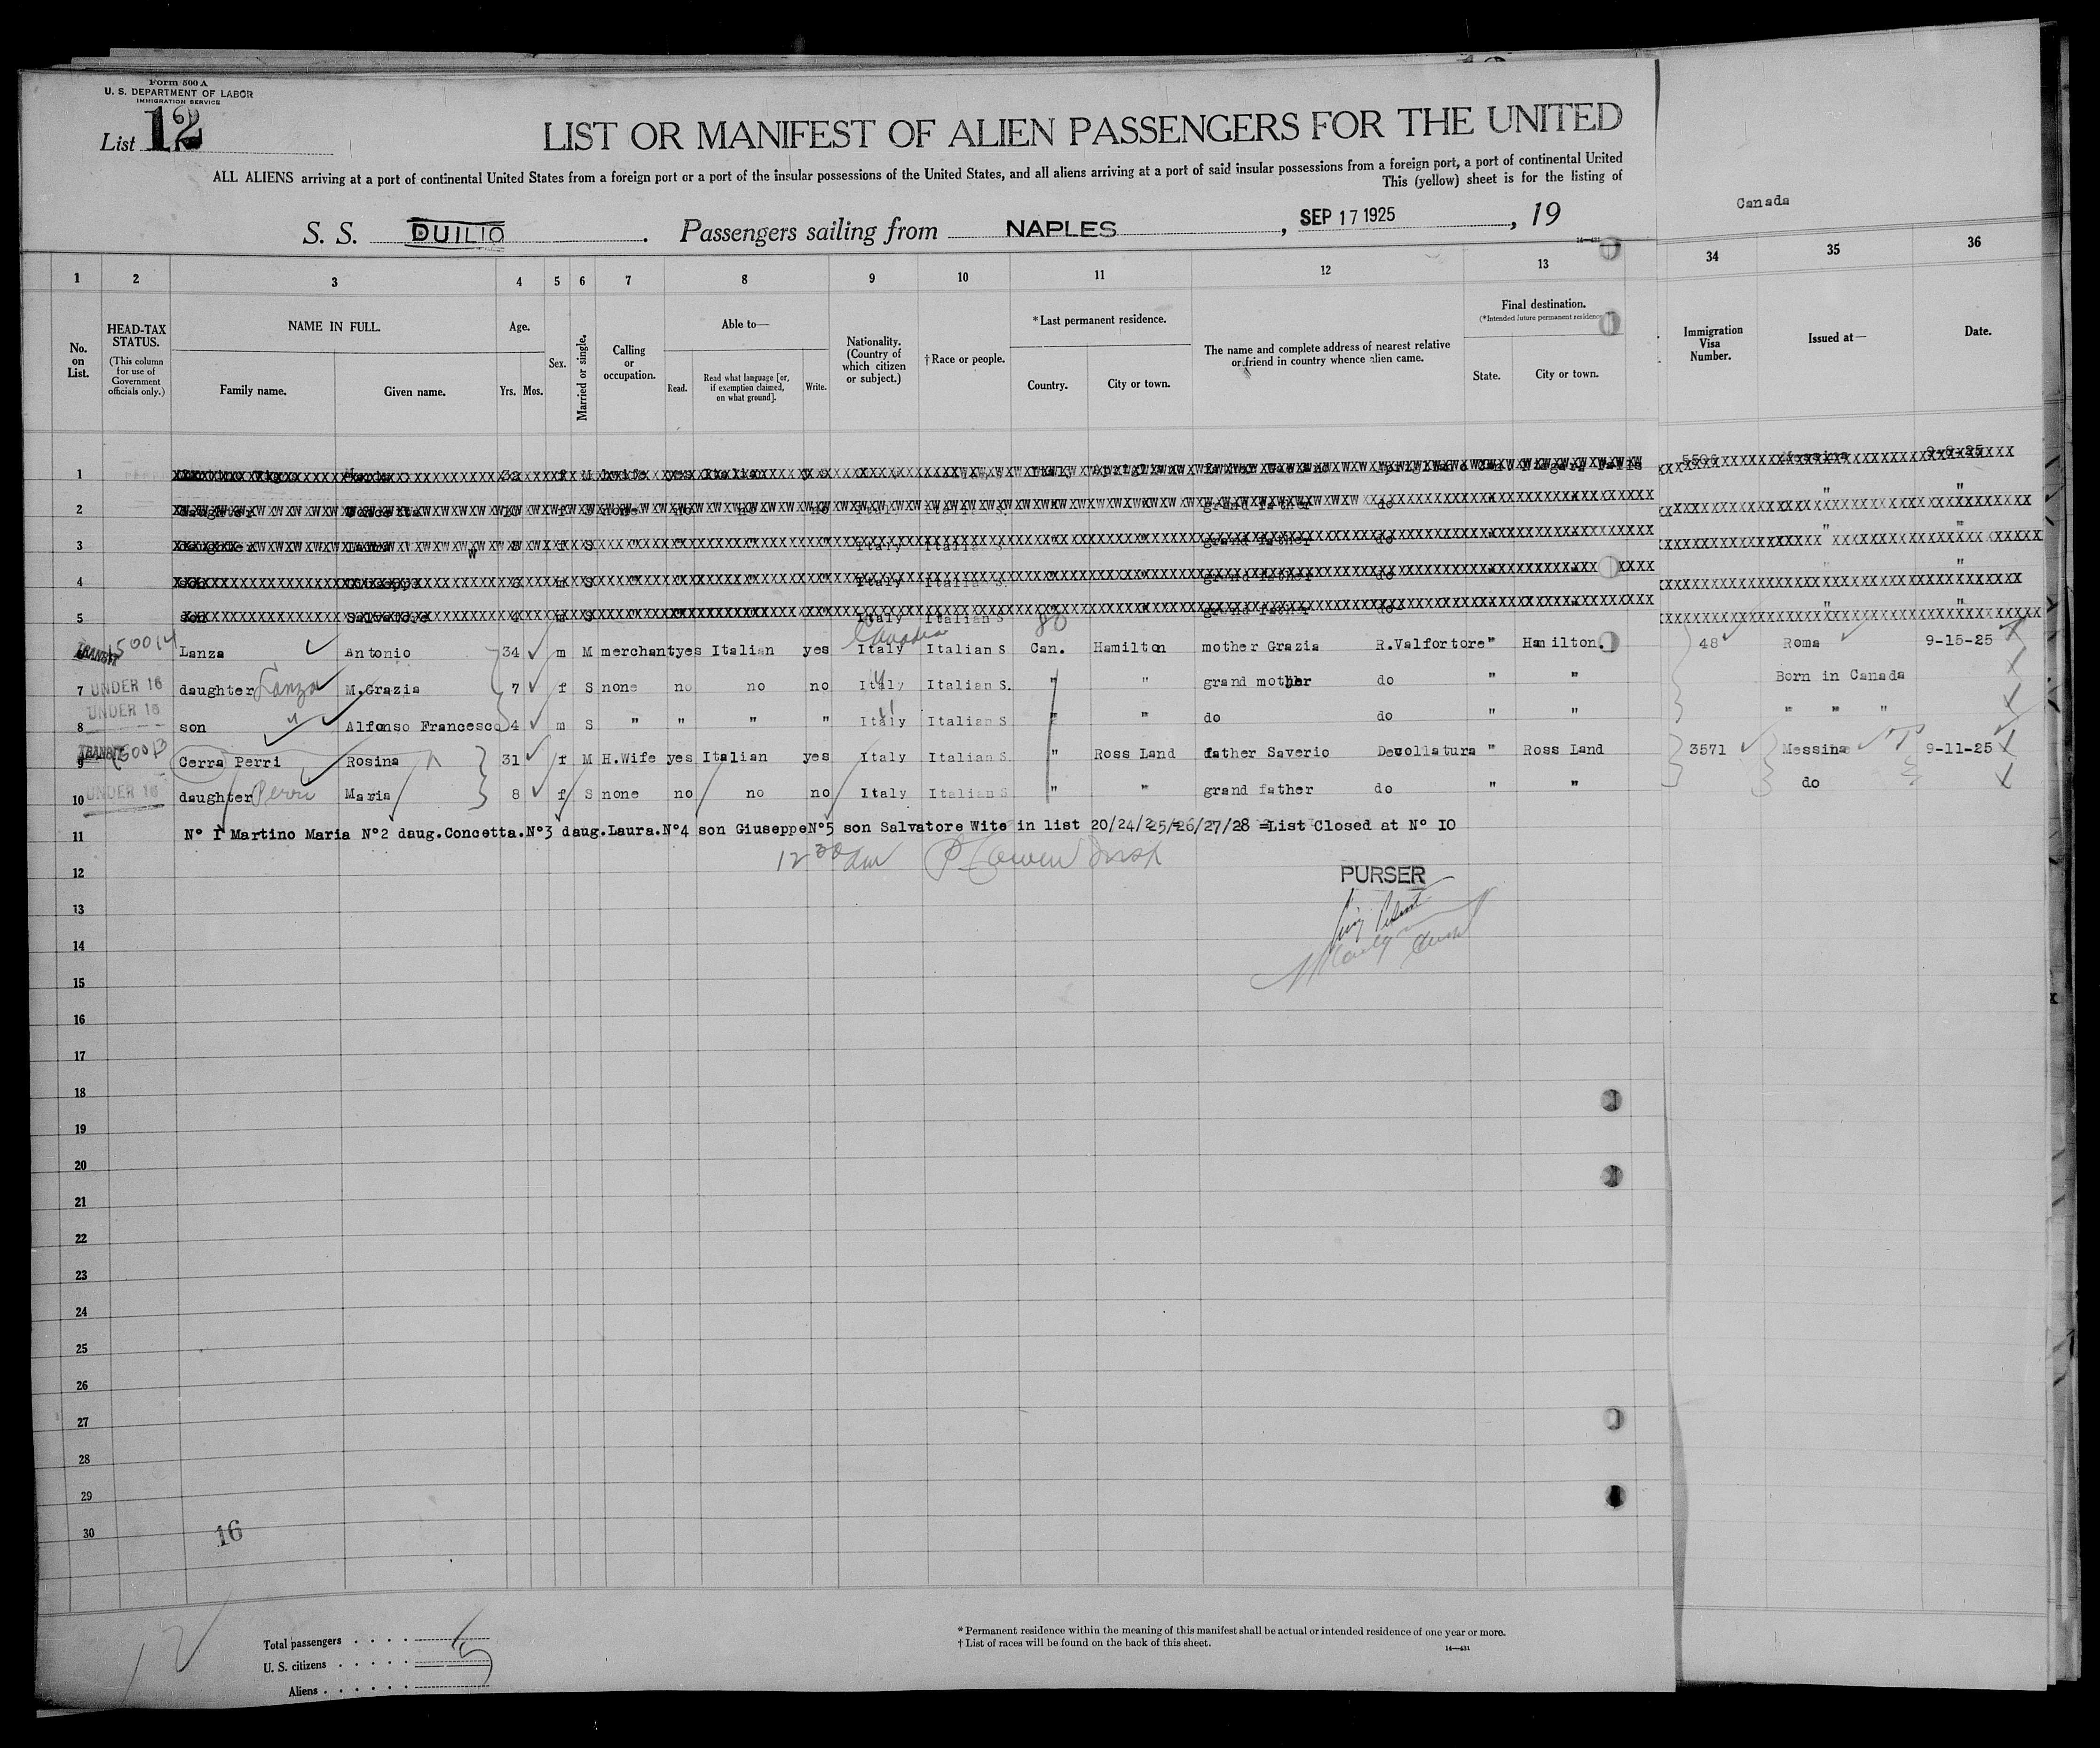 Form 500 A
U. S. DEPARTMENT OF LABOR
IMMIGRATION SERVICE
List 12
LIST OR MANIFEST OF ALIEN PASSENGERS FOR THE UNITED
ALL ALIENS arriving at a port of continental United States from a foreign port or a port of the insular possessions of the United States, and all aliens arriving at a port of said insular possessions from a foreign port, a port of continental United
This (yellow) sheet is for the listing of
Canada
S. S. DUILIO. Passengers sailing from NAPLES, SEP 17 1925, 19
16—431
1 2 3 4 5 6 7 8 9 10 11 12 13 34 35 36
No. on List.
HEAD-TAX STATUS.
(This column for use of Government officials only.)
NAME IN FULL.
Family name. Given name.
Age.
Yrs. Mos.
Sex.
Married or single.
Calling or occupation.
Able to—
Read. Read what language [or, if exemption claimed, on what ground]. Write.
Nationality. (Country of which citizen or subject.)
†Race or people.
*Last permanent residence.
Country. City or town.
The name and complete address of nearest relative or friend in country whence alien came.
Final destination.
(*Intended future permanent residence
State. City or town.
Immigration Visa Number.
Issued at—
Date.
1 f M hwife yes Italian Messina 9-8-25
2 daughter Concetta f S none no no no Italy Italian S. grand father do " "
3 f S " " " " Italy Italian S grand father do " "
4 son Giuseppe m S " " " " Italy Italian S. grand father do " "
5 son Salvatore 4 m S " " " Italy Italian S grand father do " "
80
Canada
TRANSIT 6 Lanza Antonio 34 m M merchant yes Italian yes Italy Italian S Can. Hamilton mother Grazia R.Valfortore " Hamilton. 48 Roma 9-15-25
7 UNDER 16 daughter Lanza M.Grazia 7 f S none no no no Italy Italian S. " " grand mother do " " Born in Canada
UNDER 16
8 son " Alfonso Francesco 4 m S " " " " Italy Italian S " " do do " " " " "
TRANSIT 9 Cerra Perri Rosina 31 f M H.Wife yes Italian yes Italy Italian S. " Ross Land father Saverio Decollatura " Ross Land 3571 Messina 9-11-25
UNDER 16
10 daughter Perri Maria 8 f S none no no no Italy Italian S " " grand father do " " do
11 N° I Martino Maria N°2 daug.Concetta.N°3 daug.Laura.N°4 son Giuseppe N°5 son Salvatore Wite in list 20/24/25/26/27/28 =List Closed at N° IO
12
PURSER
13
14
15
16
17
18
19
20
21
22
23
24
25
26
27
28
29
30
16
12
Total passengers
U. S. citizens
Aliens
5
* Permanent residence within the meaning of this manifest shall be actual or intended residence of one year or more.
† List of races will be found on the back of this sheet.
14—431